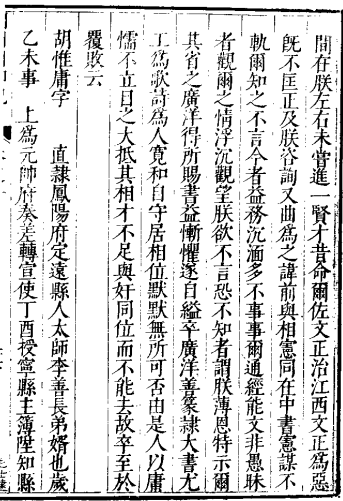 間在朕左右未嘗進一賢才昔命爾佐文正治江西文正爲惡
旣不匡正及朕咨詢又曲爲之諱前與相憲同在中書憲謀不
軌爾知之不言今者益務沉湎多不事事爾通經能文非愚昧
者觀爾之情浮沉觀望朕欲不言恐不知者謂朕薄恩特示爾
其省之廣洋得所賜書益慚懼遂自縊卒廣洋善篆隷大書尤
工爲歌詩爲人寬和自守居相位默默無所可否由是人以庸
懦不立目之大抵其相才不足與奸同位而不能去故卒至於
覆敗云
胡惟庸字 直隷鳳陽府定遠縣人太師李善長弟婿也歲
乙未事 上爲元帥府奏差轉宣使丁酉授寧縣主簿陞知縣